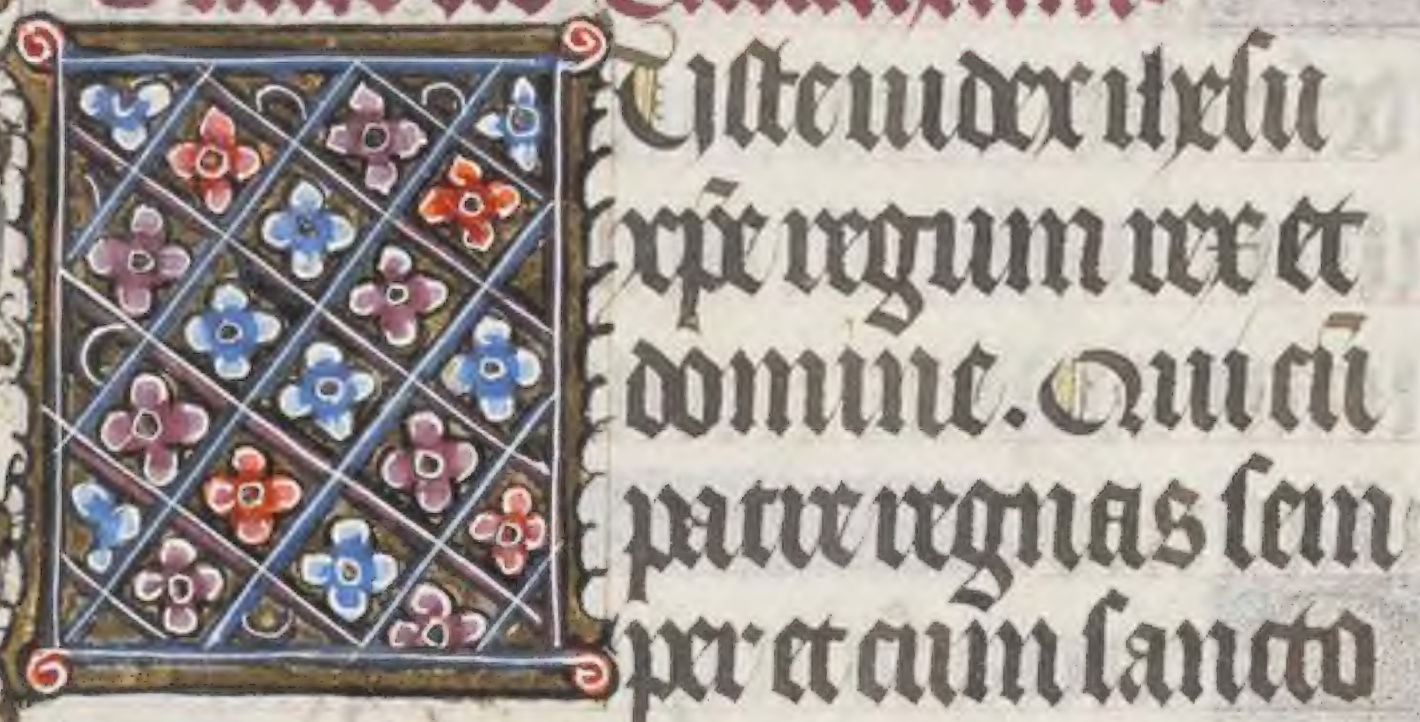 Uste iudex ihesu
xp̄e regum rex et
domine. Qui cū
patre regnas sem
per et cum sancto